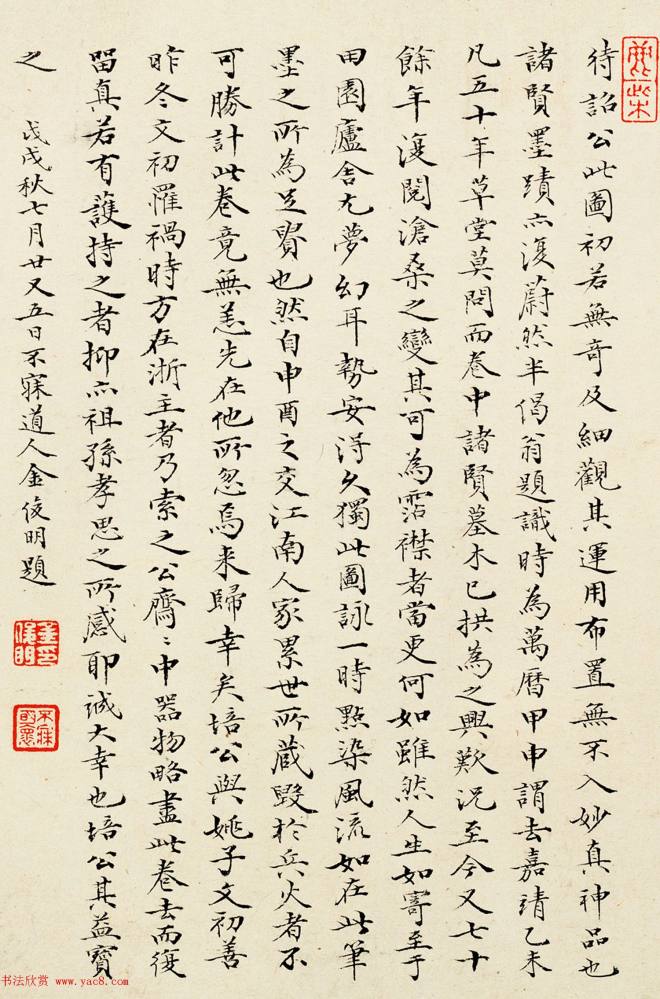 待詔公此圖初若無奇及細觀其運用布置無不入妙真神品也
諸賢墨蹟亦復蔚然半偈翁題識時為萬曆甲申謂去嘉靖乙未
凡五十年草堂莫問而卷中諸賢墓木已拱為之興歎況至今又七十
餘年復閱滄桑之變其可為霑襟者當更何如雖然人生如寄至于
田園廬舍尤夢幻耳勢安得久獨此圖詠一時點染風流如在此筆
墨之所為足貴也然自申酉之交江南人家累世所藏毀於兵火者不
可勝計此卷竟無恙先在他所忽焉来歸幸矣培公與姚子文初善
昨冬文初罹禍時方在浙主者乃索之公齋〻中器物略盡此卷去而復
留真若有護持之者抑亦祖孫孝思之所感耶誠大幸也培公其益寶
之
戊戌秋七月廿又五日不寐道人金俊明題
金俊明
不寐
书法欣赏 www.yac8.com